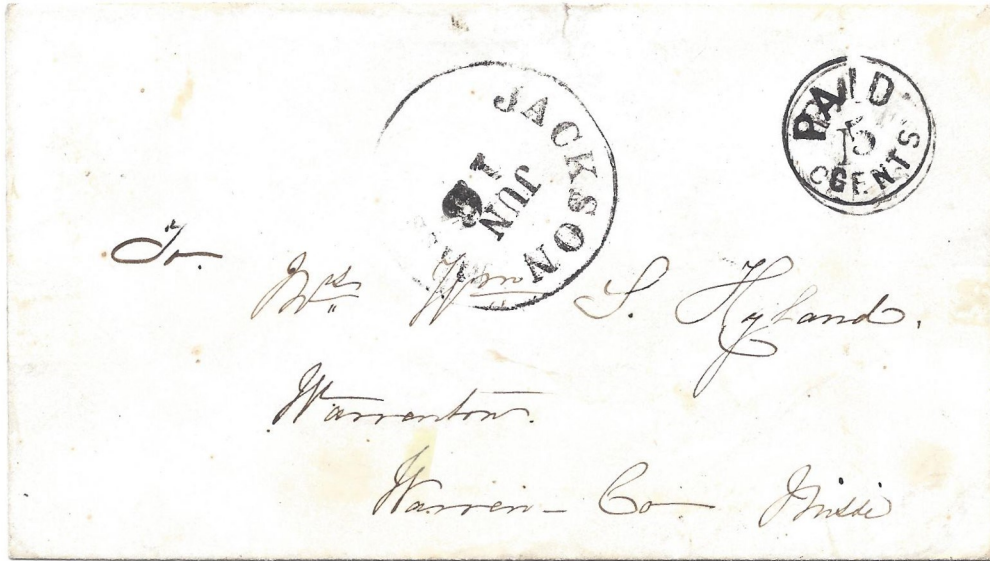 JACKSON
JUN
PAID
5
CENTS
To.
Mrs Wm S. Hyland.
Warrenton.
Warren - Co. Missi